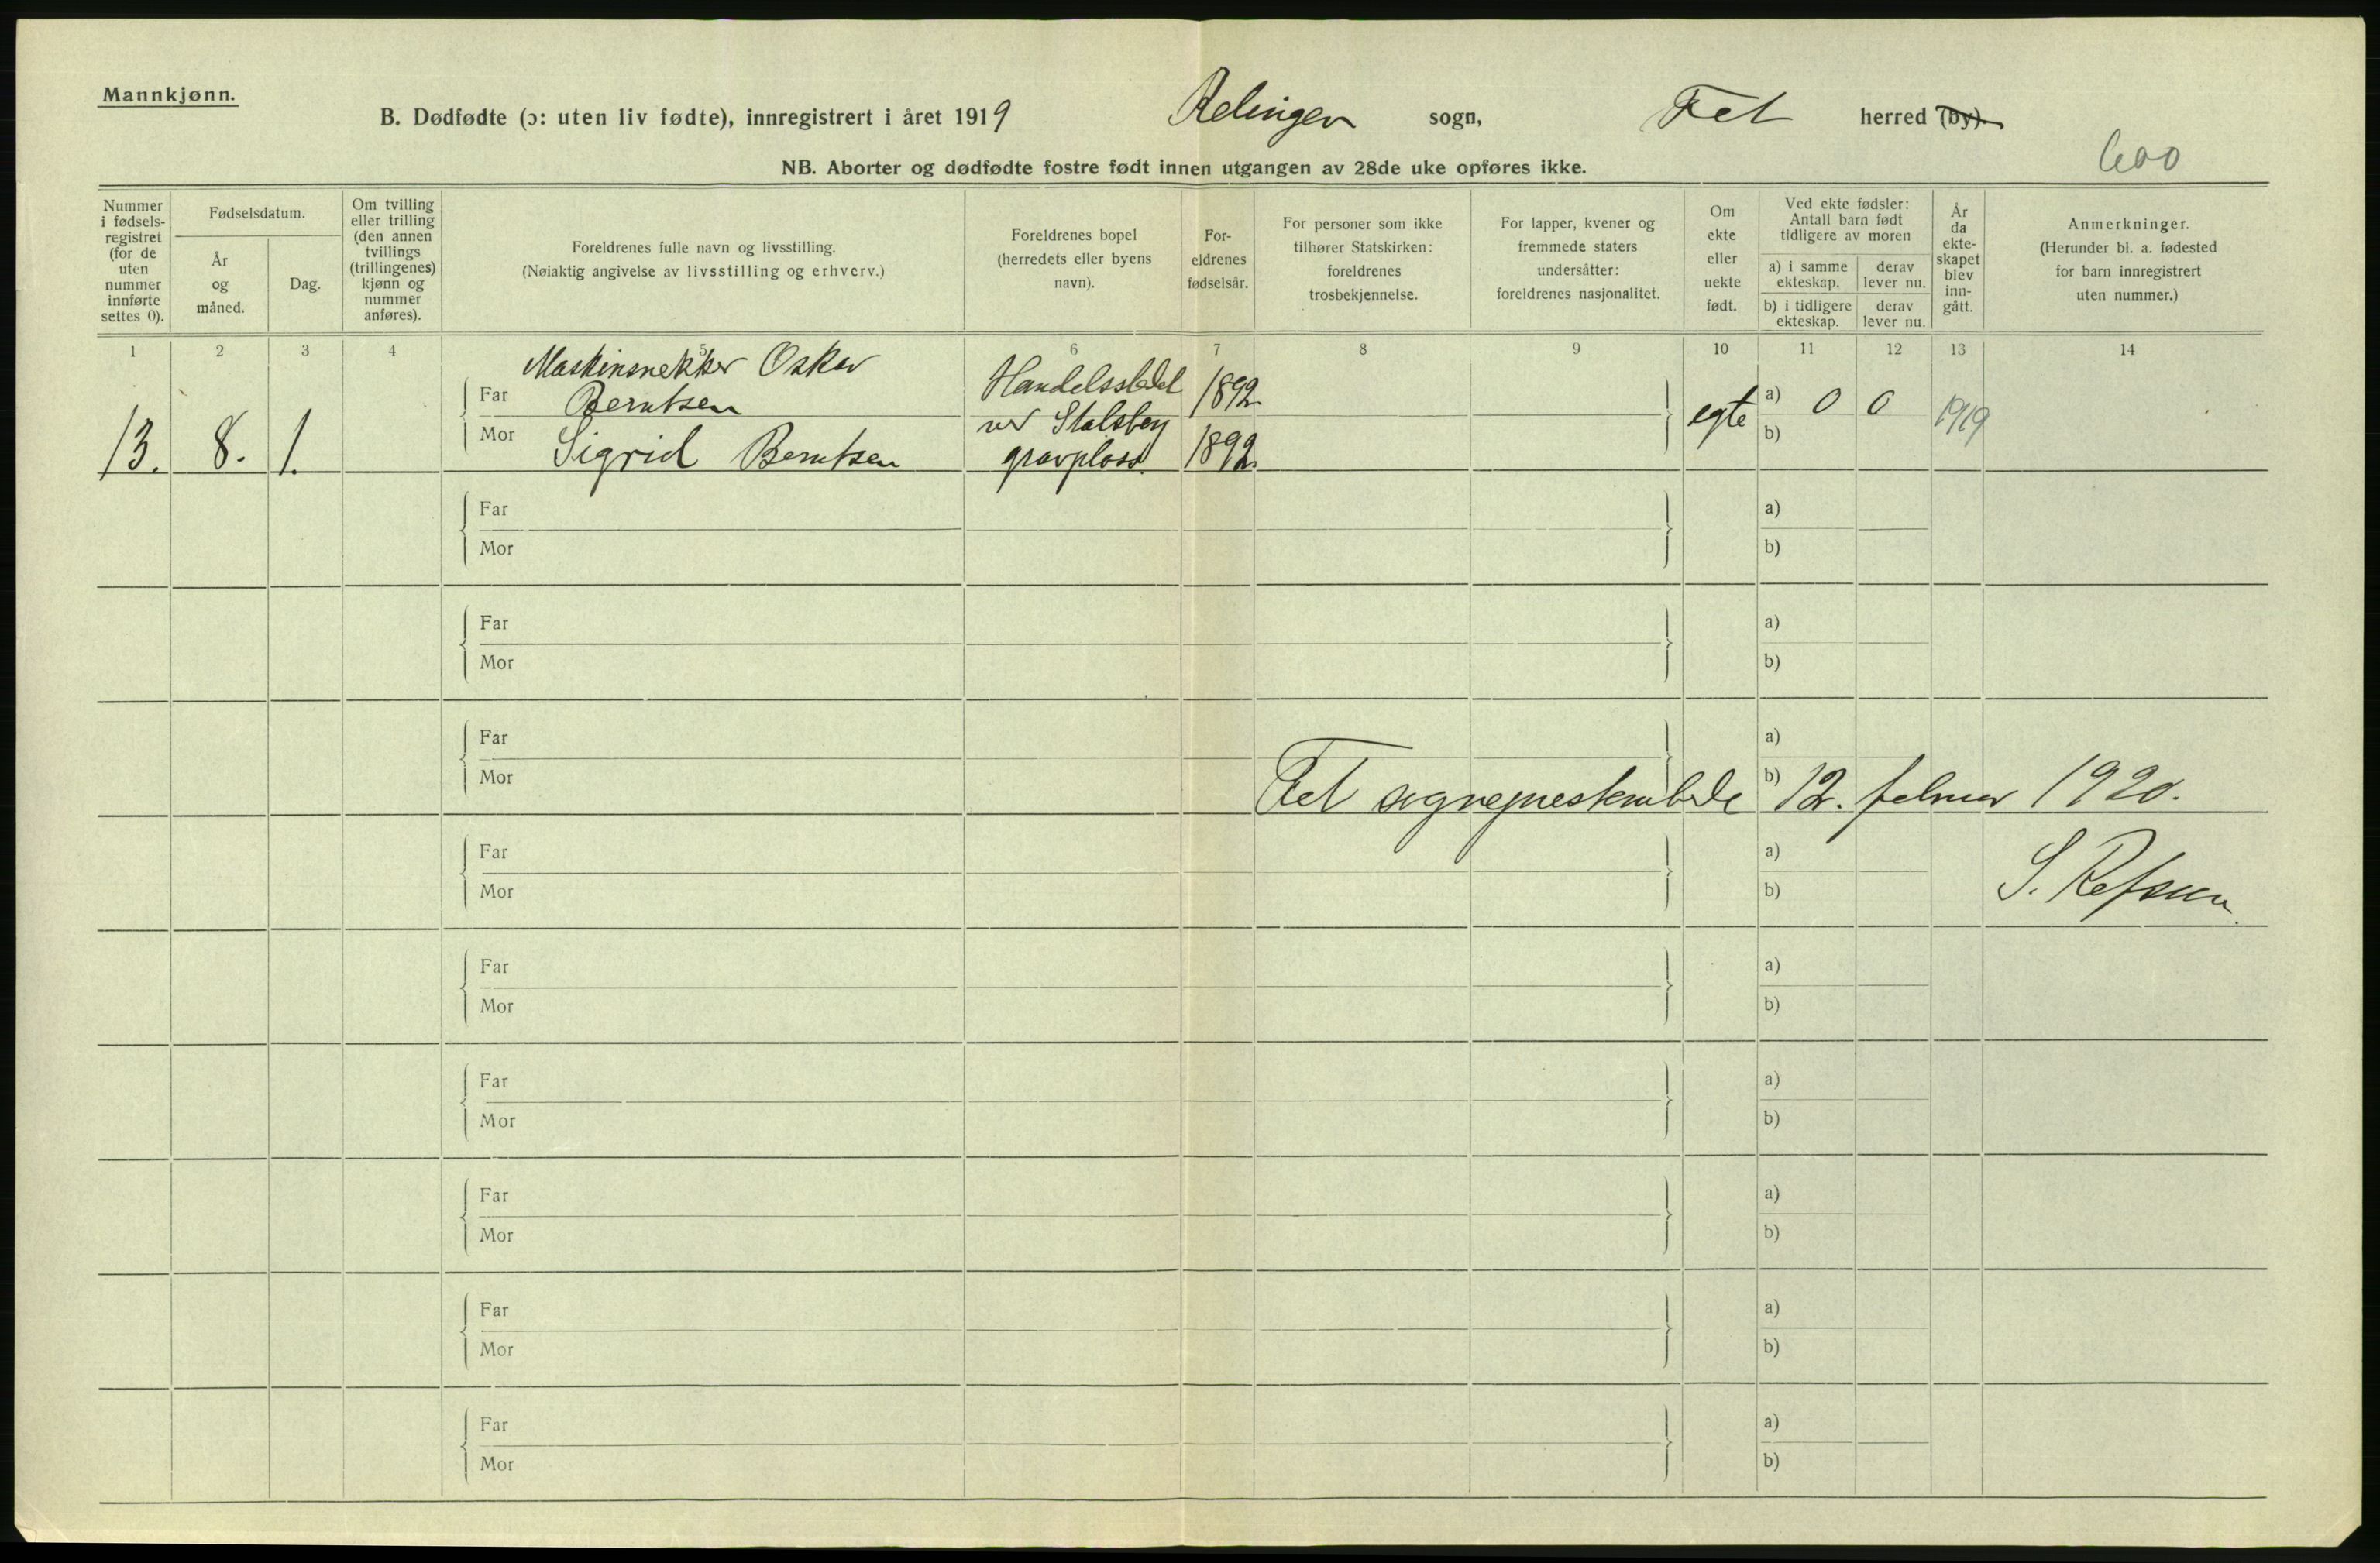 Mannkjønn.
B. Dødfødte (ɔ: uten liv fødte), innregistrert i året 1919 Relingen sogn, Fet herred (by).
NB. Aborter og dødfødte fostre født innen utgangen av 28de uke opføres ikke.
600
Nummer i fødsels-registret (for de uten nummer innførte settes 0).
Fødselsdatum.
År og måned.
Dag.
Om tvilling eller trilling (den annen tvillings (trillingenes) kjønn og nummer anføres).
Foreldrenes fulle navn og livsstilling.
(Nøiaktig angivelse av livsstilling og erhverv.)
Foreldrenes bopel (herredets eller byens navn).
For-eldrenes fødselsår.
For personer som ikke tilhører Statskirken: foreldrenes trosbekjennelse.
For lapper, kvener og fremmede staters undersåtter: foreldrenes nasjonalitet.
Om ekte eller uekte født.
Ved ekte fødsler: Antall barn født tidligere av moren
a) i samme ekteskap.
derav lever nu.
b) i tidligere ekteskap.
derav lever nu.
År da ekte-skapet blev inn-gått.
Anmerkninger.
(Herunder bl. a. fødested for barn innregistrert uten nummer.)
1 2 3 4 5 6 7 8 9 10 11 12 13 14
13. 8. 1.
Far Maskinsnekker Oskar Berntsen
Mor Sigrid Berntsen
Handelsstedet
ved Stalsberg
gravplass.
1892.
1892.
egte
a) 0 0
b)
1919
Far a)
Mor b)
Far a)
Mor b)
Far a)
Mor b)
Fet sogneprestembede 12. februar 1920.
Far a)
Mor b)
S. Refsum.
Far a)
Mor b)
Far a)
Mor b)
Far a)
Mor b)
Far a)
Mor b)
Far a)
Mor b)